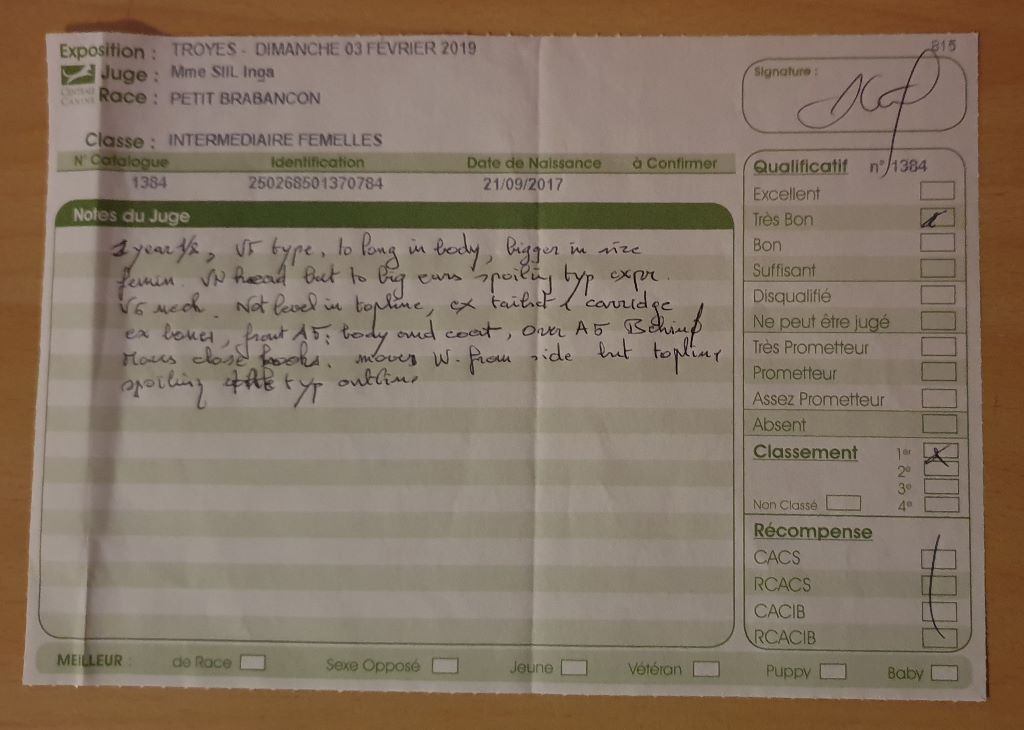 B15
Exposition : TROYES - DIMANCHE 03 FÉVRIER 2019
Juge : Mme SIIL Inga
CENTRALE CANINE
Race : PETIT BRABANCON
Classe : INTERMEDIAIRE FEMELLES
N° Catalogue Identification Date de Naissance à Confirmer
1384 250268501370784 21/09/2017
Notes du Juge
1 year 1/2, VG type, to long in body, bigger in size
femin. head but to big ears spoiling typ expr.
VG neck. Not level in topline, ex tailset & carridge
ex bones, front AG, body and coat, over AG Behind
Moves close hooks. moves W. from side but topline
spoiling typ outline
Signature :
Qualificatif n° 1384
Excellent
Très Bon x
Bon
Suffisant
Disqualifié
Ne peut être jugé
Très Prometteur
Prometteur
Assez Prometteur
Absent
Classement 1er x
2e
3e
Non Classé 4e
Récompense
CACS
RCACS
CACIB
RCACIB
MEILLEUR : de Race Sexe Opposé Jeune Vétéran Puppy Baby